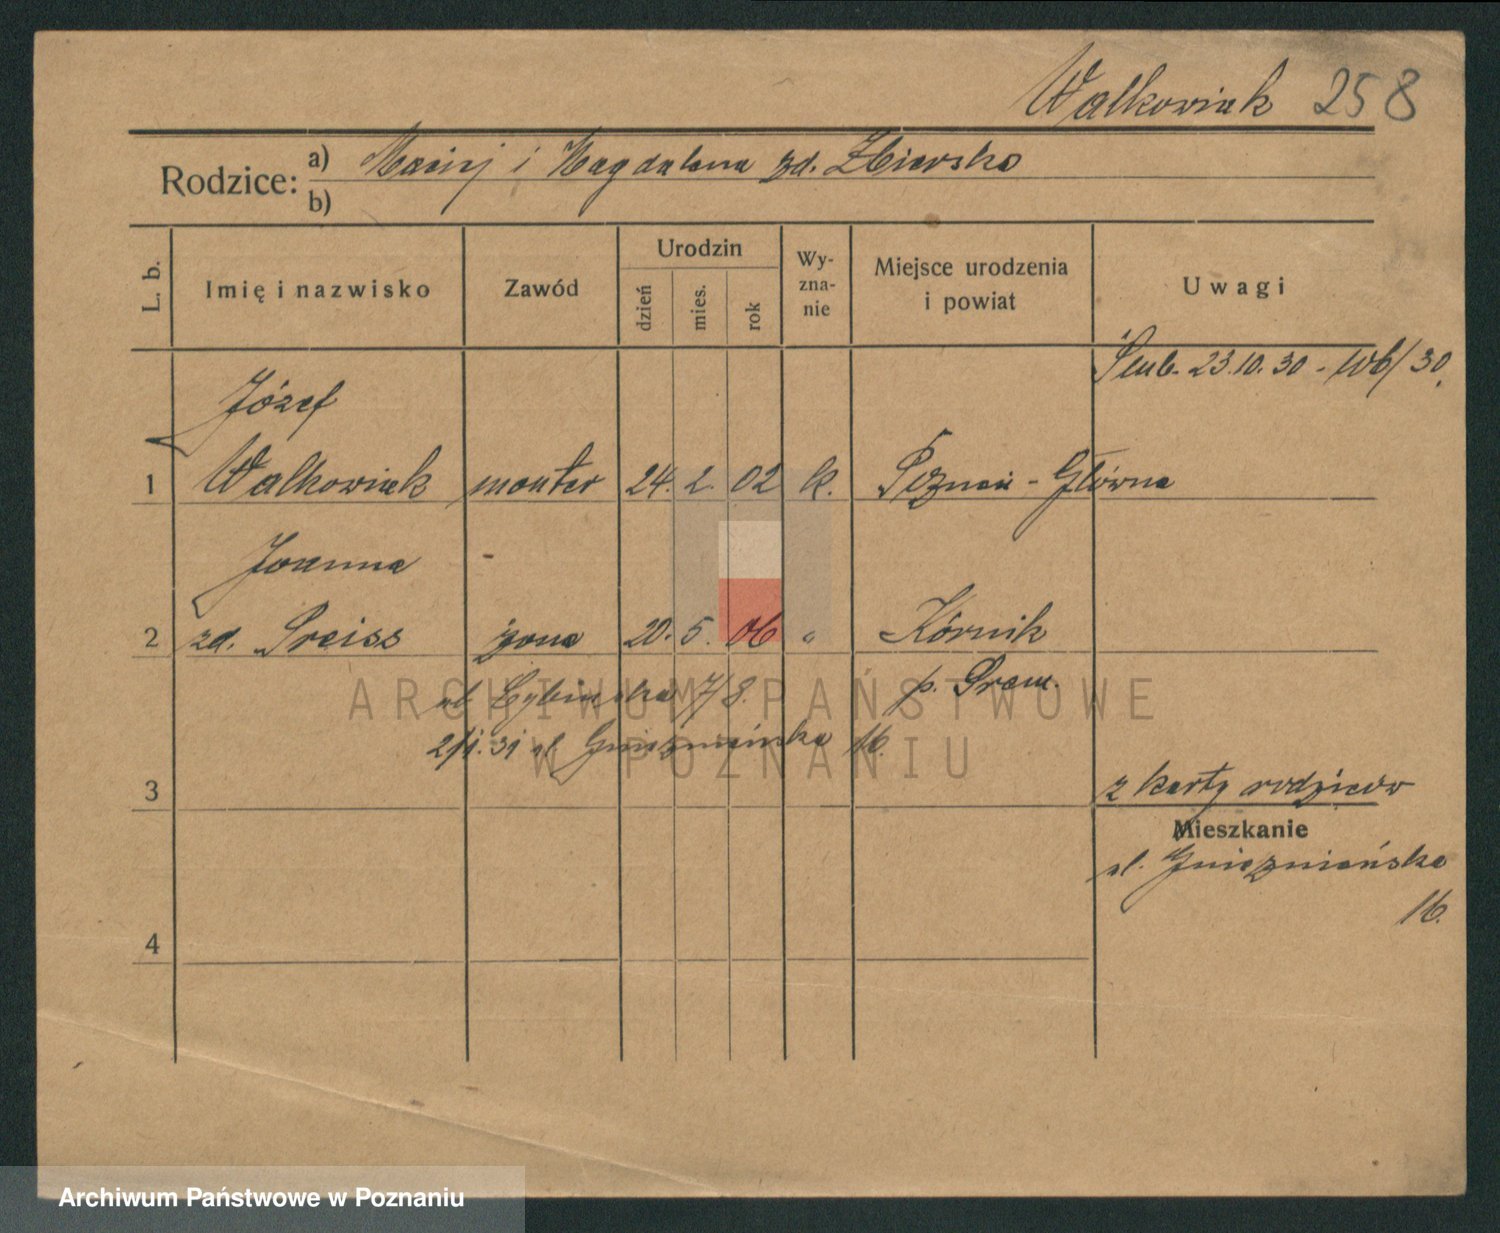 Walkowiak 258
Rodzice: a) Maciej i Magdalena zd. Zbierska
b)
L. b.
Imię i nazwisko
Zawód
Urodzin
dzień
mies.
rok
Wy-
zna-
nie
Miejsce urodzenia
i powiat
Uwagi
Ślub. 23.10.30 - 106/30.
Józef
1 Walkowiak monter 24. 2. 02 k. Poznań - Główna
Joanna -
2 zd. Preiss żona 20. 5. 06 " Kórnik
ul. Cybińska 7/8. p. Śrem.
2/1.31 ul. Gnieźnieńska 16.
3
z karty rodziców
Mieszkanie
ul. Gnieźnieńska
16.
4
ARCHIWUM PAŃSTWOWE
W POZNANIU
Archiwum Państwowe w Poznaniu